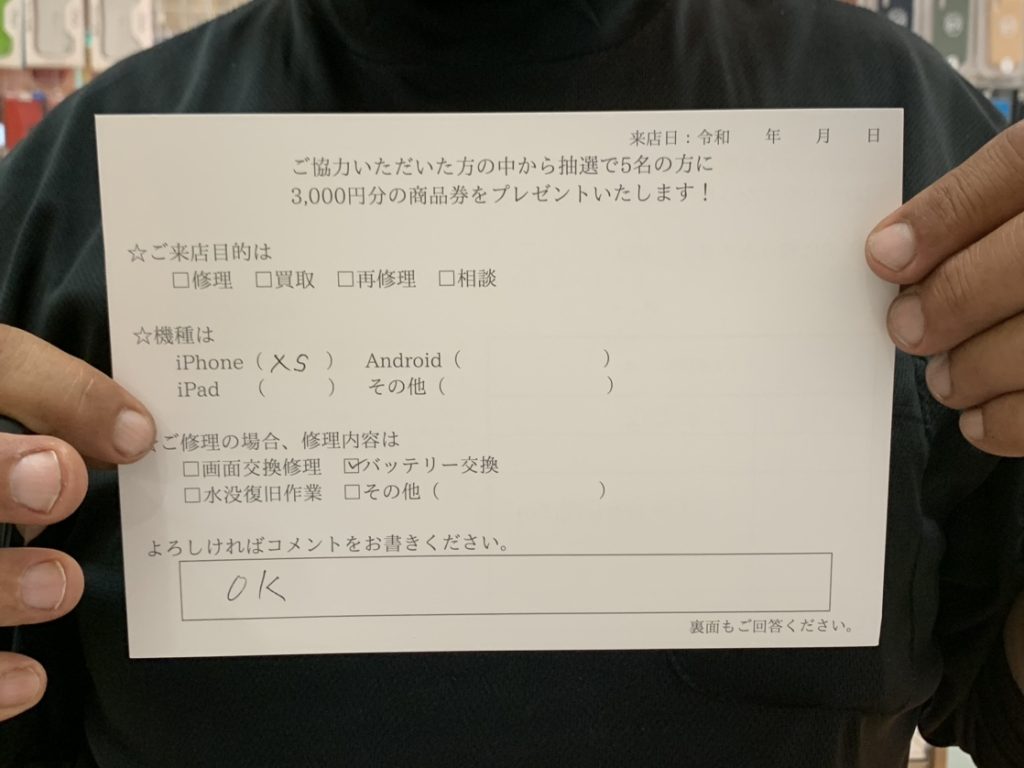 来店日：令和　　年　　月　　日
ご協力いただいた方の中から抽選で5名の方に
3,000円分の商品券をプレゼントいたします！
☆ご来店目的は
□修理　□買取　□再修理　□相談
☆機種は
iPhone（ XS ）　Android（　　　　　　　）
iPad　（　　　）　その他（　　　　　　　　）
☆ご修理の場合、修理内容は
□画面交換修理　☑バッテリー交換
□水没復旧作業　□その他（　　　　　　　　）
よろしければコメントをお書きください。
OK
裏面もご回答ください。